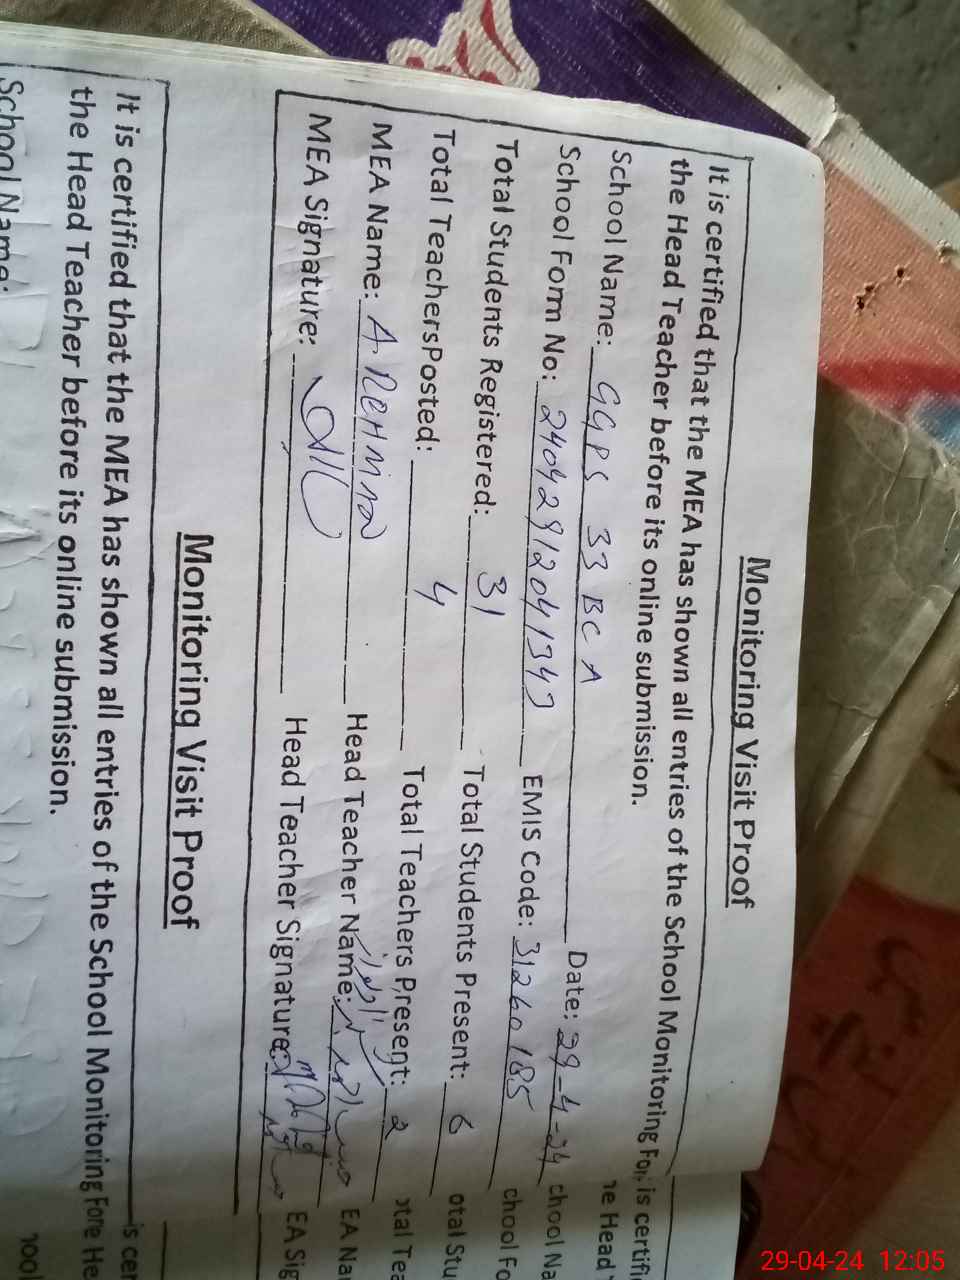 Monitoring Visit Proof
It is certified that the MEA has shown all entries of the School Monitoring For
the Head Teacher before its online submission.
School Name: GGPS 33 BC A Date: 29-4-24
School Form No: 2404291204134 EMIS Code: 31260185
Total Students Registered: 31 Total Students Present: 6
Total TeachersPosted: 4 Total Teachers Present: 2
MEA Name: A REHMAN Head Teacher Name:
MEA Signature: Head Teacher Signature:
Monitoring Visit Proof
It is certified that the MEA has shown all entries of the School Monitoring For
the Head Teacher before its online submission.
School Name:
is certifi
he Head
chool Na
chool Fo
otal Stu
otal Tea
EA Na
EA Sig
is cer
e He
hool
29-04-24 12:05